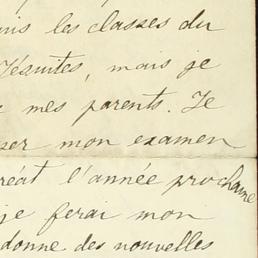 les classes du
Jésuites, mais je
mes parents. Je
mon examen
l'année prochaine
je ferai mon
donne des nouvelles